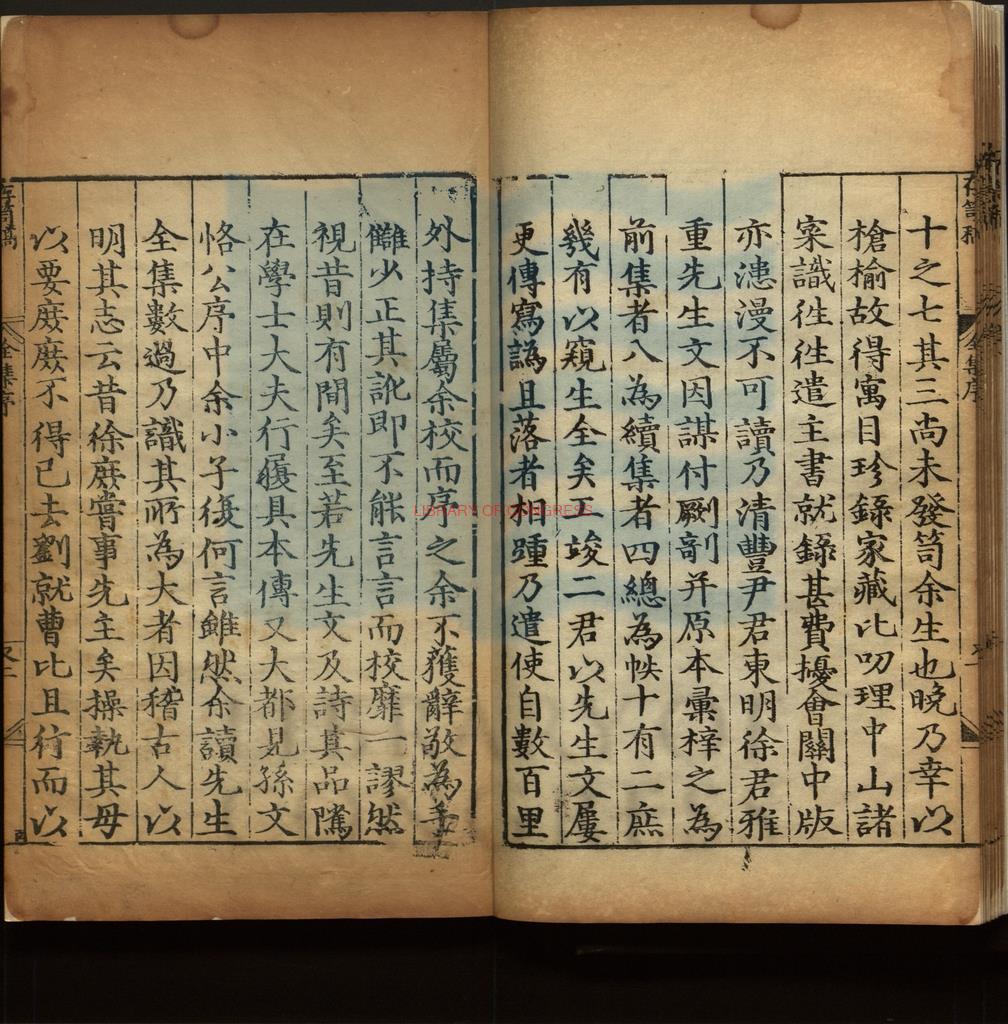 十之七其三尚未發笥余生也晚乃幸以
槍榆故得寓目珍錄家藏比叨理中山諸
寀識徃徃遣主書就錄甚費擾會關中版
亦漶漫不可讀乃清豐尹君東明徐君雅
重先生文因謀付劂剞并原本彙梓之為
前集者八為續集者四總為帙十有二庶
幾有以窺生全矣工竣二君以先生文屢
更傳寫譌且落者相踵乃遣使自數百里
外持集屬余校而序之余不獲辭敬為
讎少正其訛即不能言言而校靡一謬然
視昔則有間矣至若先生文及詩其品隲
在學士大夫行履具本傳又大都見孫文
恪公序中余小子復何言雖然余讀先生
全集數過乃識其所為大者因稽古人以
明其志云昔徐庶嘗事先主矣操執其母
以要庶庶不得已去劉就曹比且行而以
全集序
LIBRARY OF CONGRESS